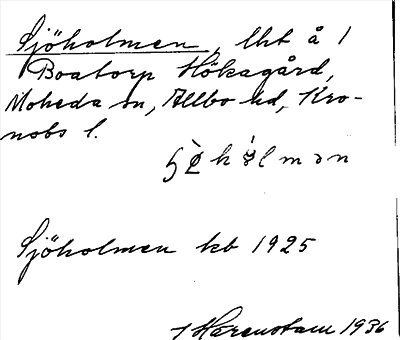 Sjöholmen, lht å 1
Boatorp Hökagård,
Moheda sn, Allbo hd, Kro-
nobs l.
Sjöholmen kb 1925
Harenstam 1936